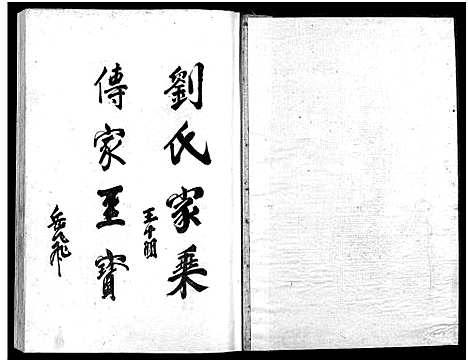 劉氏家乘
王十朋
傳家至寳
岳飛